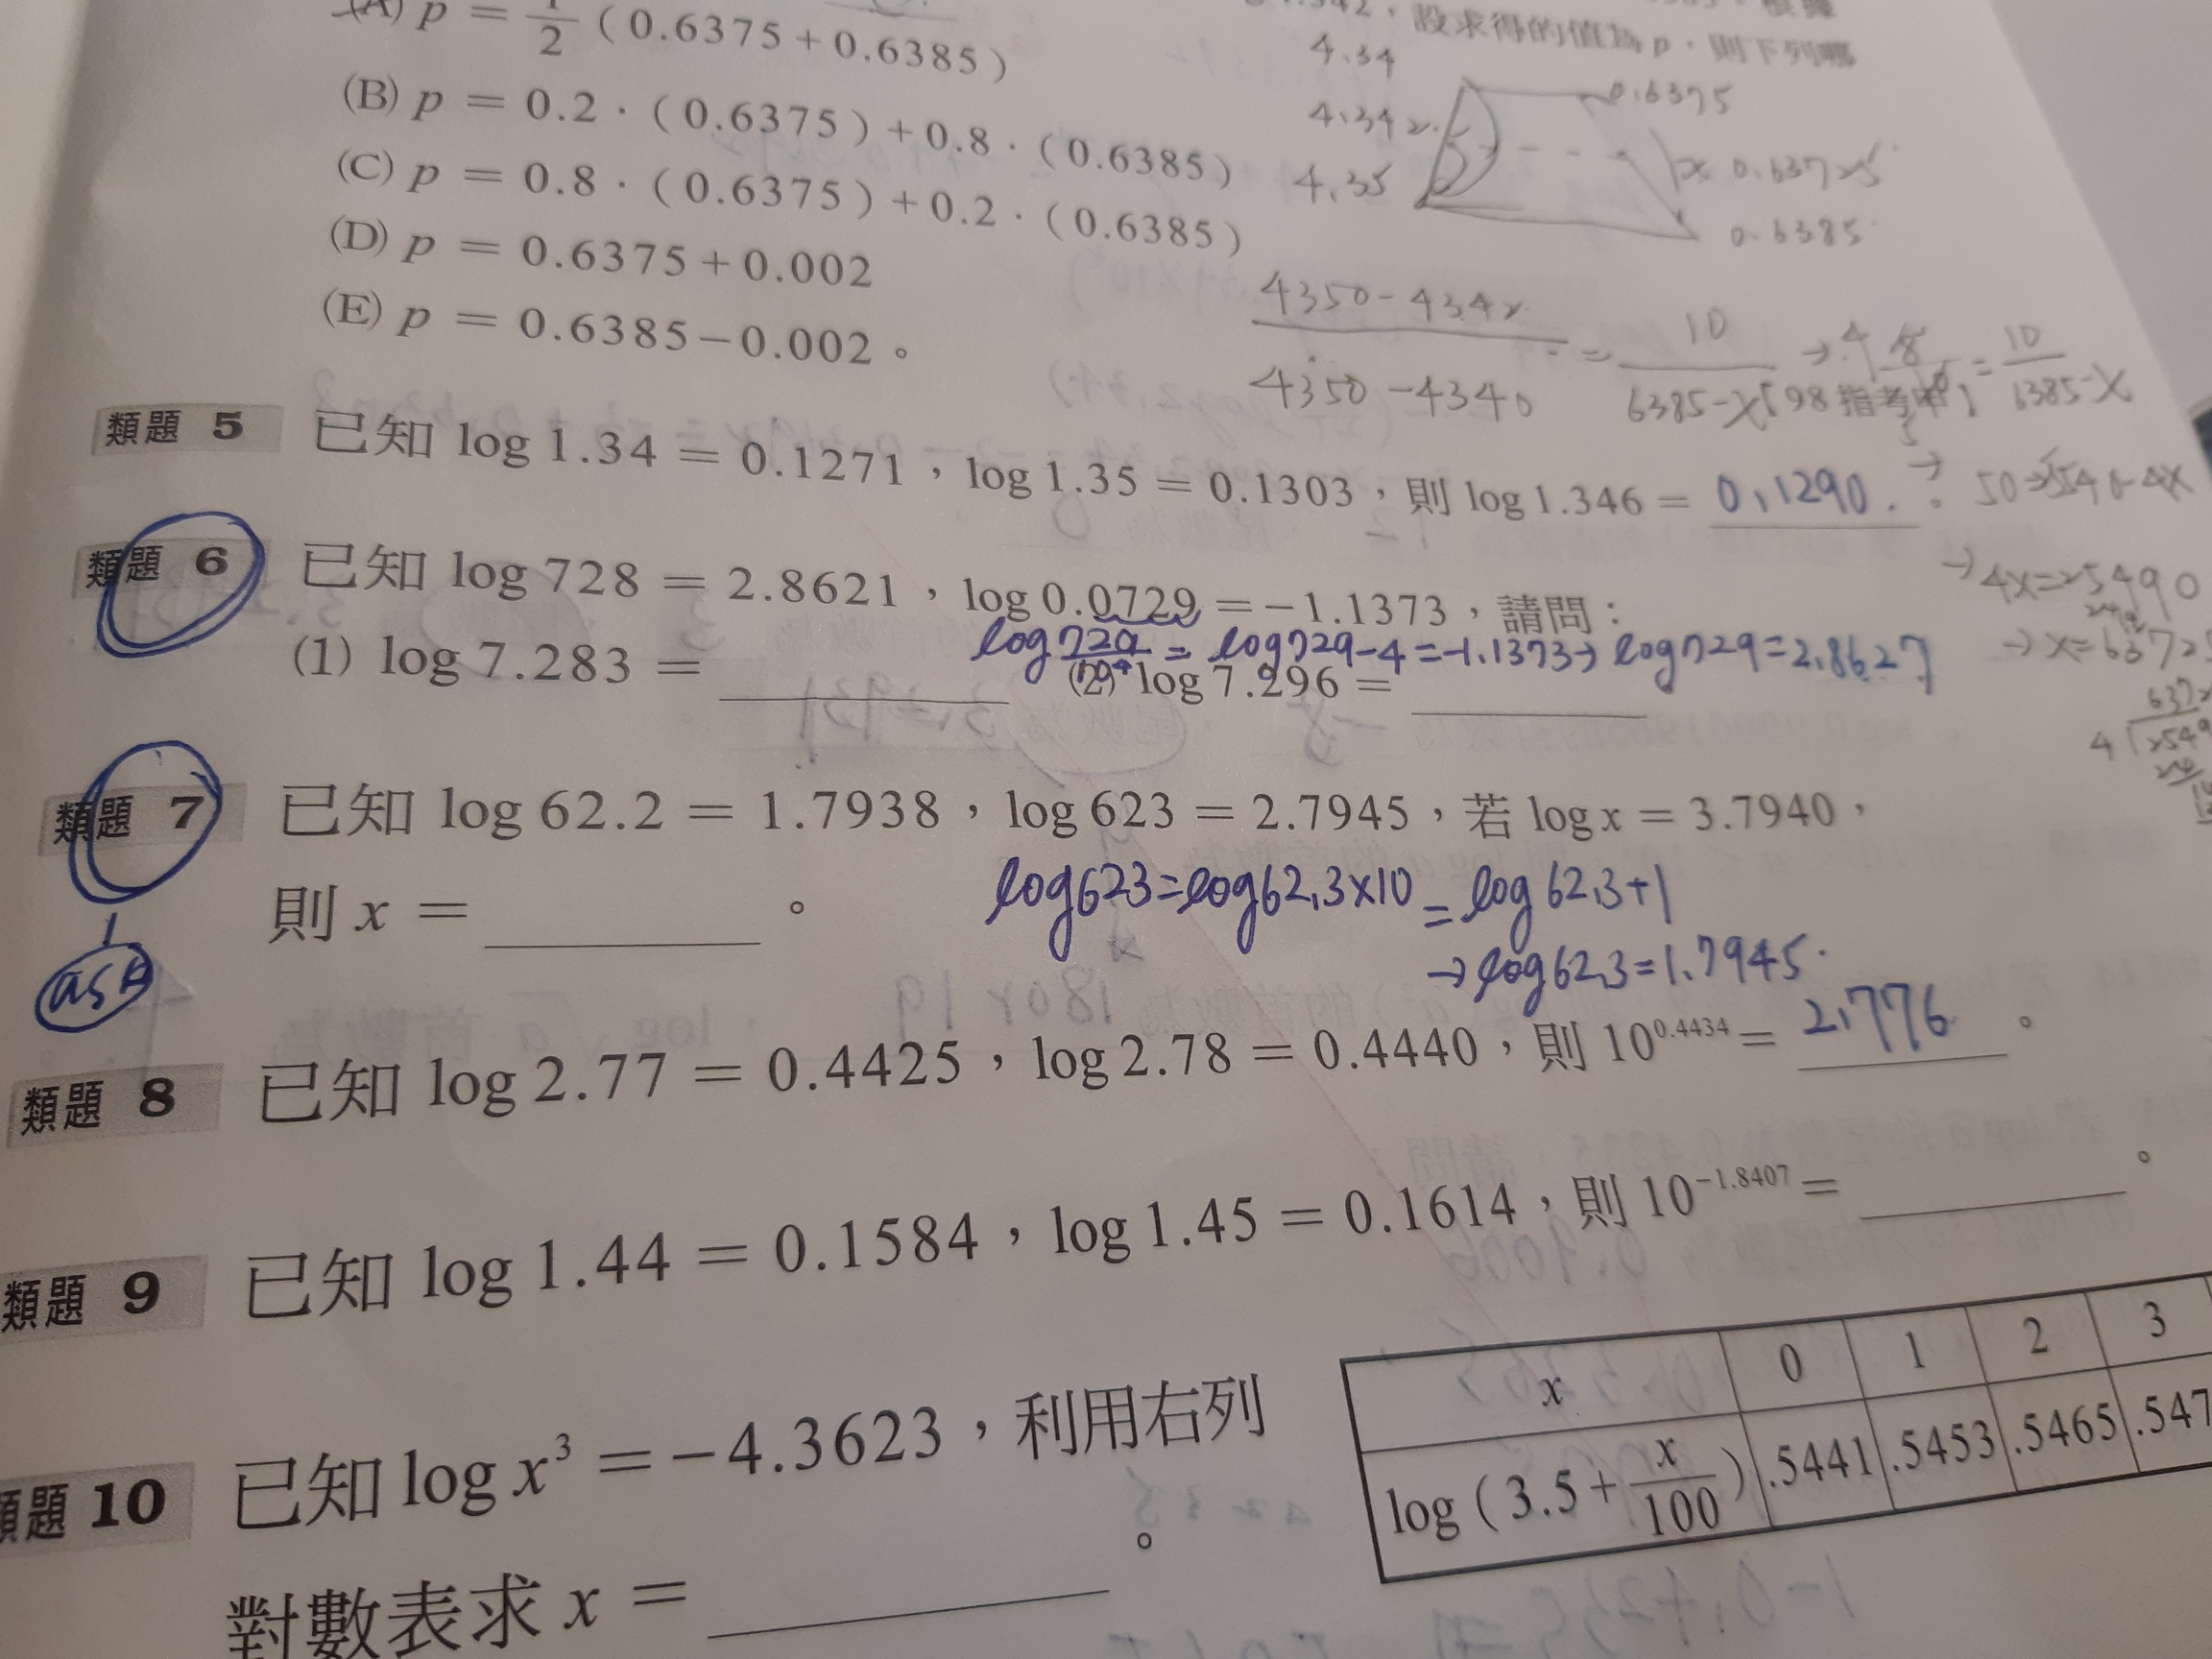 (A) p = 1/2 (0.6375+0.6385)
(B) p = 0.2·(0.6375)+0.8·(0.6385)
(C) p = 0.8·(0.6375)+0.2·(0.6385)
(D) p = 0.6375+0.002
(E) p = 0.6385−0.002。
,設求得的值為 p,則下列哪
4.34
0.6375
4.342
x 0.63725
4.35
0.6385
4350-4342 / 4350-4340 = 10 / 6385-x → 8 = 10 / 6385-x
[98 指考甲]
類題 5 已知 log 1.34 = 0.1271,log 1.35 = 0.1303,則 log 1.346 = 0.1290 。
→ 4x=25490
類題 6 已知 log 728 = 2.8621,log 0.0729 = −1.1373,請問:
log 729/10⁴ = log729-4=-1.1373→ log729=2.8627
(1) log 7.283 = (2) log 7.296 =
類題 7 已知 log 62.2 = 1.7938,log 623 = 2.7945,若 log x = 3.7940,
則 x = 。
log623=log62.3×10 = log 62.3+1
→log62.3=1.7945.
ask
類題 8 已知 log 2.77 = 0.4425,log 2.78 = 0.4440,則 10^0.4434 = 2.776 。
類題 9 已知 log 1.44 = 0.1584,log 1.45 = 0.1614,則 10^−1.8407 = 。
類題 10 已知 log x³ = −4.3623,利用右列
對數表求 x = 。
x 0 1 2 3
log (3.5 + x/100) .5441 .5453 .5465 .547